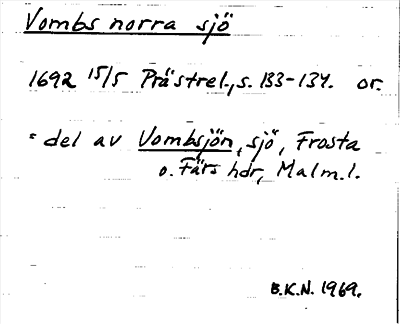 Vombs norra sjö
1692 15/5 Prästrel., s. 133-134. or.
= del av Vombsjön, sjö, Frosta
o. Färs hdr, Malm.l.
B.K.N. 1969.